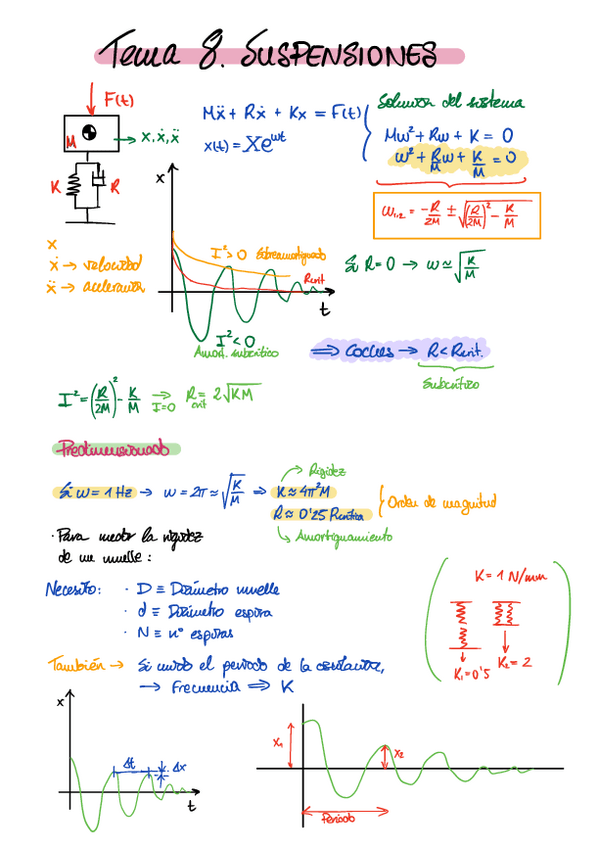 Tema 8. SUSPENSIONES
F(t)
M
x, ẋ, ẍ
K
R
Mẍ + Rẋ + Kx = F(t)
x(t) = Xe^wt
Solución del sistema
Mw² + Rw + K = 0
w² + R/M w + K/M = 0
w₁,₂ = -R/2M ± √((R/2M)² - K/M)
x
ẋ → velocidad
ẍ → aceleración
x
I² > 0 Sobreamortiguado
Rcrit
t
I² < 0
Amort. subcrítico
Si R = 0 → w ≃ √(K/M)
⇒ Coches → R < Rcrit.
Subcrítico
I² = (R/2M)² - K/M → I=0 R crit = 2√KM
Predimensionado
Si w = 1 Hz → w = 2π ≃ √(K/M) ⇒ K ≈ 4π²M
Rigidez
R ≈ 0'25 Rcrítica
Orden de magnitud
Amortiguamiento
· Para medir la rigidez
de un muelle:
Necesito: · D ≡ Diámetro muelle
· d ≡ Diámetro espira
· N ≡ nº espiras
K = 1 N/mm
K₁ = 0'5
K₂ = 2
También → Si mido el periodo de la oscilación,
→ Frecuencia ⇒ K
x
Δt
Δx
t
x₁
x₂
Periodo